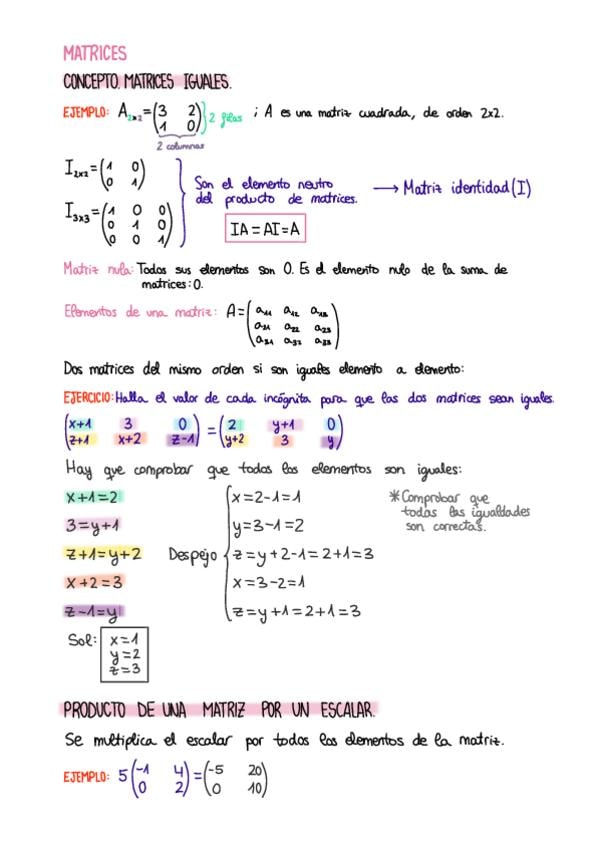 MATRICES
CONCEPTO. MATRICES IGUALES.
EJEMPLO: A₂ₓ₂ = (3 2 / 1 0) } 2 filas ; A es una matriz cuadrada, de orden 2x2.
2 columnas
I₂ₓ₂ = (1 0 / 0 1)
I₃ₓ₃ = (1 0 0 / 0 1 0 / 0 0 1)
Son el elemento neutro → Matriz identidad (I)
del producto de matrices.
IA = AI = A
Matriz nula: Todos sus elementos son 0. Es el elemento nulo de la suma de
matrices: 0.
Elementos de una matriz: A = (a₁₁ a₁₂ a₁₃ / a₂₁ a₂₂ a₂₃ / a₃₁ a₃₂ a₃₃)
Dos matrices del mismo orden si son iguales elemento a elemento:
EJERCICIO: Halla el valor de cada incógnita para que las dos matrices sean iguales.
(x+1 3 0 / z+1 x+2 z-1) = (2 y+1 0 / y+2 3 y)
Hay que comprobar que todos los elementos son iguales:
x+1=2
3=y+1
z+1=y+2
x+2=3
z-1=y
Despejo
x=2-1=1
y=3-1=2
z=y+2-1=2+1=3
x=3-2=1
z=y+1=2+1=3
*Comprobar que
todas las igualdades
son correctas.
Sol: x=1
y=2
z=3
PRODUCTO DE UNA MATRIZ POR UN ESCALAR.
Se multiplica el escalar por todos los elementos de la matriz.
EJEMPLO: 5 (-1 4 / 0 2) = (-5 20 / 0 10)